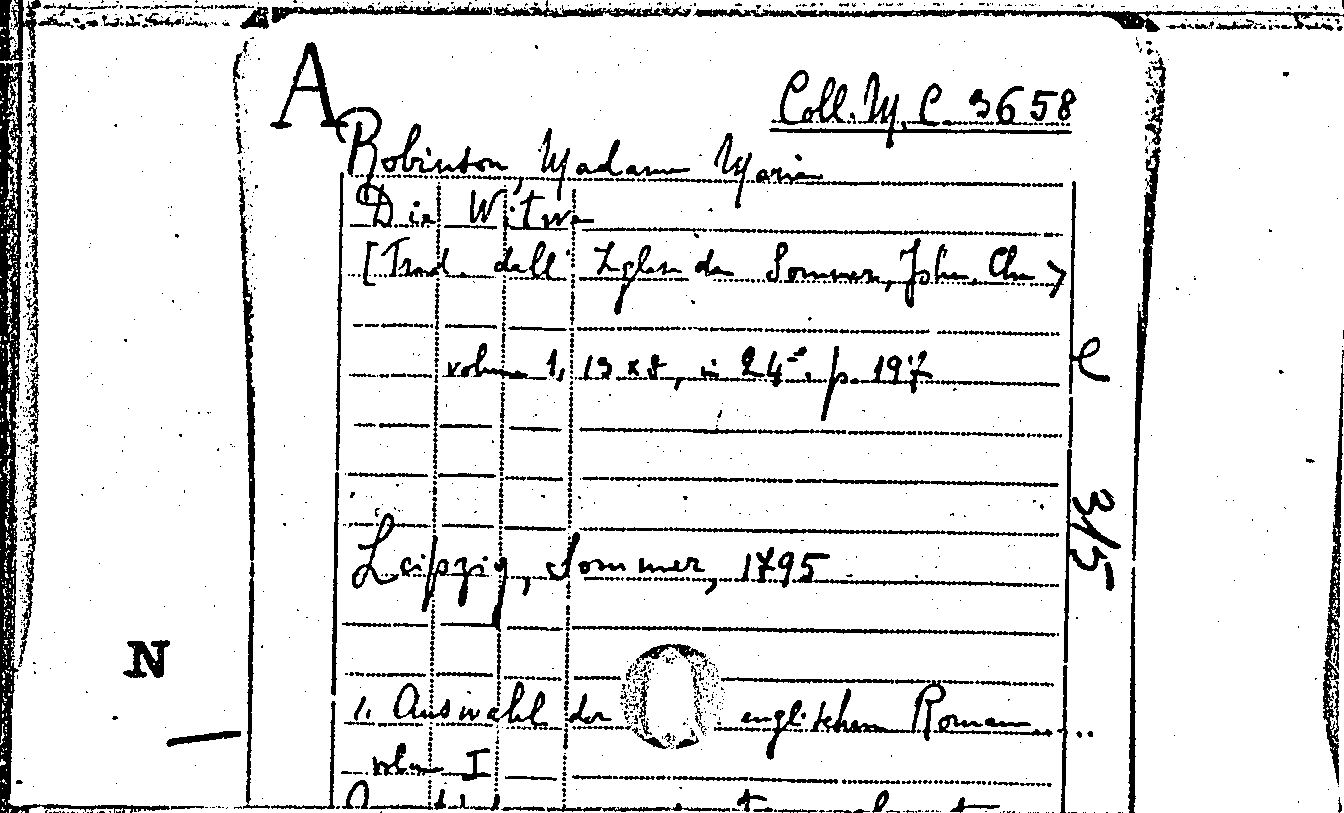 A
Coll. M. C. 3658
Robinson, Madame Maria
Die Witwe
[Trad. dall' Inglese da Sommer, Joh. Chr >
volume 1, 13 x 8, in 24°. p. 197
e
3/5
Leipzig, Sommer, 1795
N
1. Auswahl der englischen Romane.....
volume I